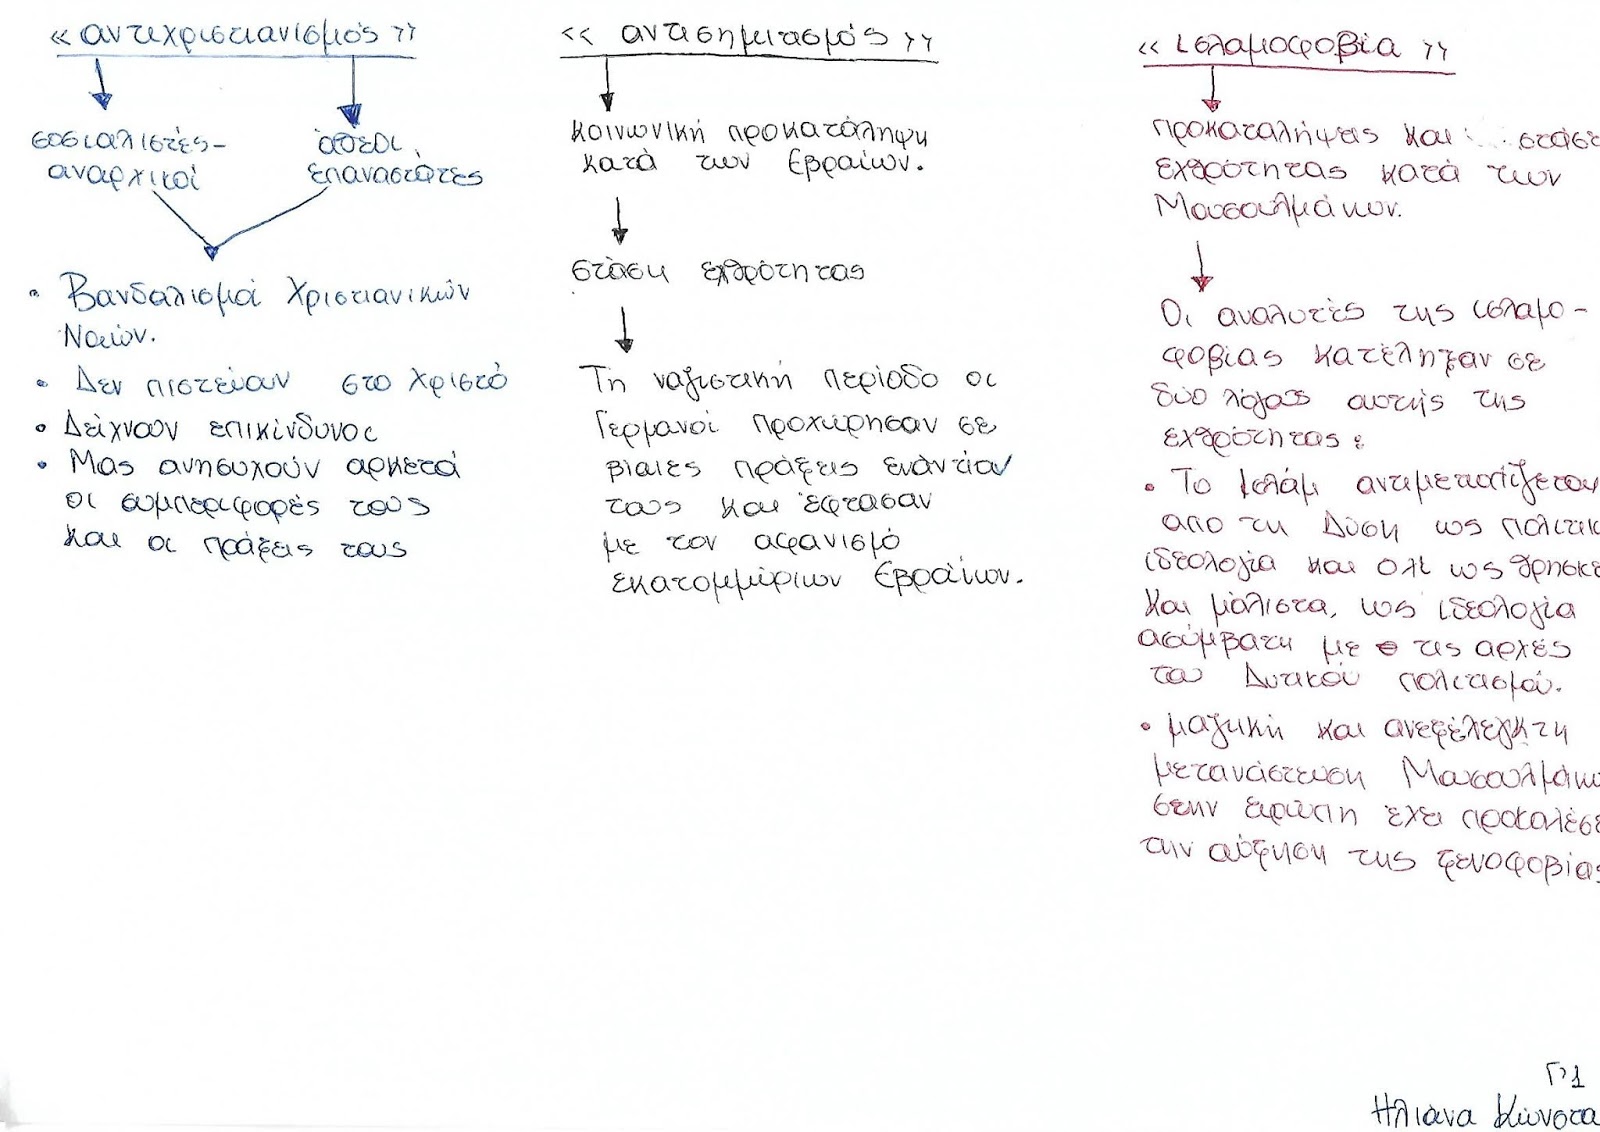 « αντιχριστιανισμός »
σοσιαλιστές-
αναρχικοί
άθεοι,
επαναστάτες
• Βανδαλισμοί Χριστιανικών
Ναών.
• Δεν πιστεύουν στο Χριστό
• Δείχνουν επικίνδυνοι
• Μας ανησυχούν αρκετά
οι συμπεριφορές τους
και οι πράξεις τους
« αντισημιτισμός »
κοινωνική προκατάληψη
κατά των Εβραίων.
στάση εχθρότητας
Τη ναζιστική περίοδο οι
Γερμανοί προχώρησαν σε
βίαιες πράξεις εναντίον
τους και έφτασαν
με τον αφανισμό
εκατομμύριων Εβραίων.
« Ισλαμοφοβία »
προκαταλήψεις και στάσε
εχθρότητας κατά των
Μουσουλμάνων.
Οι αναλυτές της ισλαμο-
φοβίας κατέληξαν σε
δύο λόγους αυτής της
εχθρότητας:
• Το Ισλάμ αντιμετωπίζεται
απο τη Δύση ως πολιτικ
ιδεολογία και όχι ως θρησκε
και μάλιστα, ως ιδεολογία
ασύμβατη με τις αρχές
του Δυτικού πολιτισμού.
• μαζική και ανεξέλεγκτη
μετανάστευση Μουσουλμάνω
στην ευρώπη έχει προκαλέσε
την αύξηση της ξενοφοβίας
Γ'1
Ηλιάνα Κώνστα